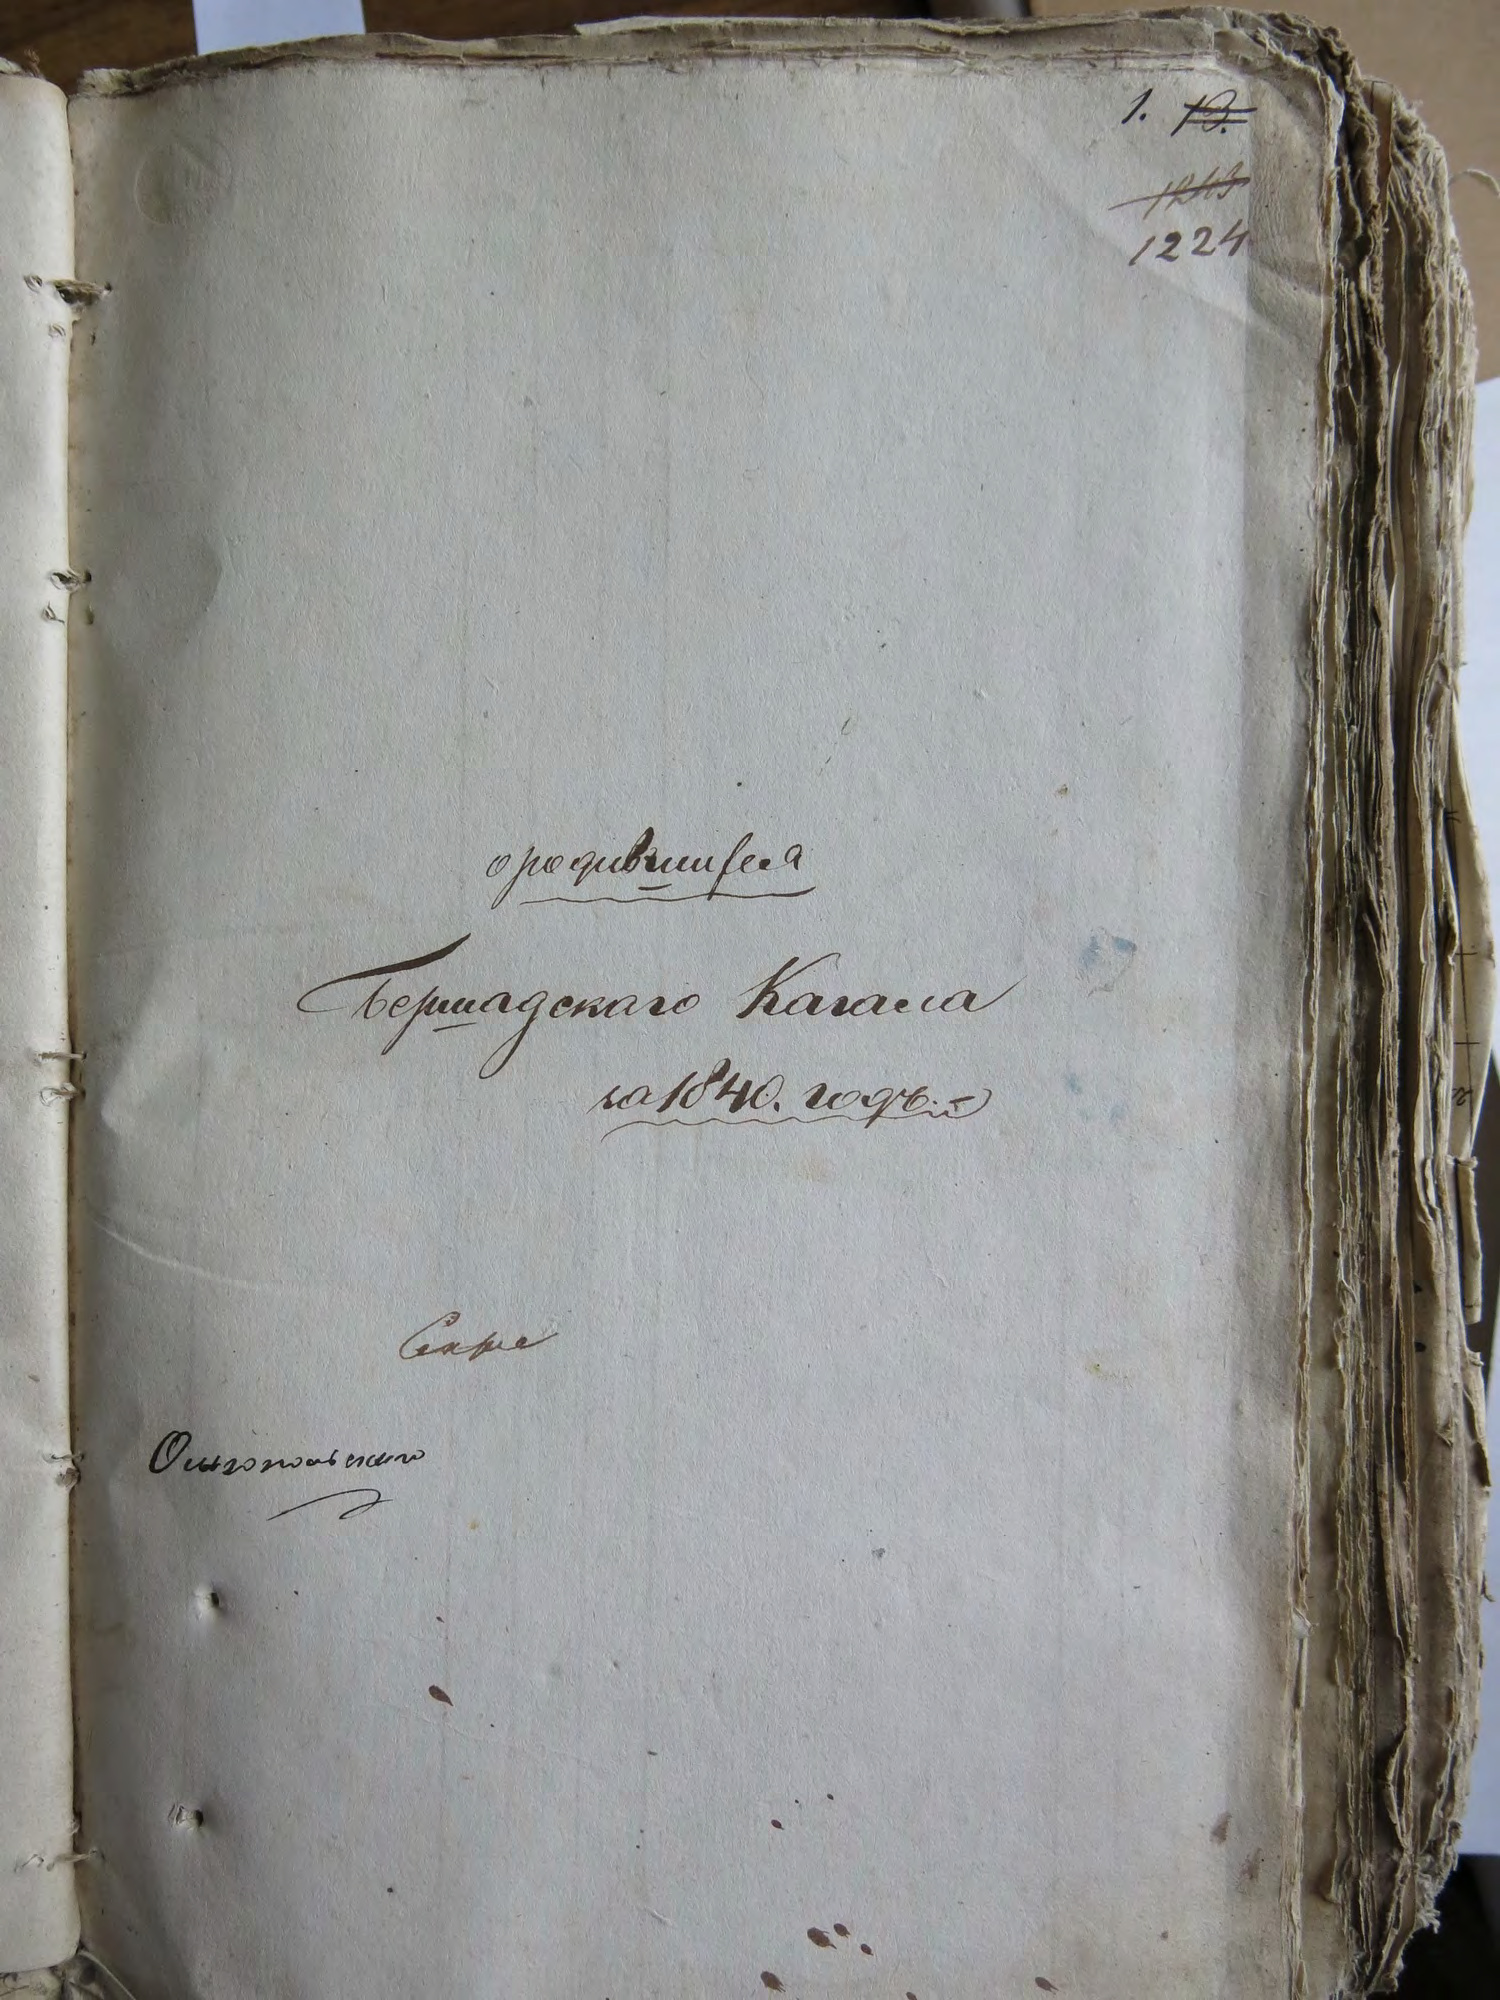 1. 19.
1243
1224
о родившихся
Бершадскаго Кагала
за 1840. годъ.
Секре
Ольгопольского